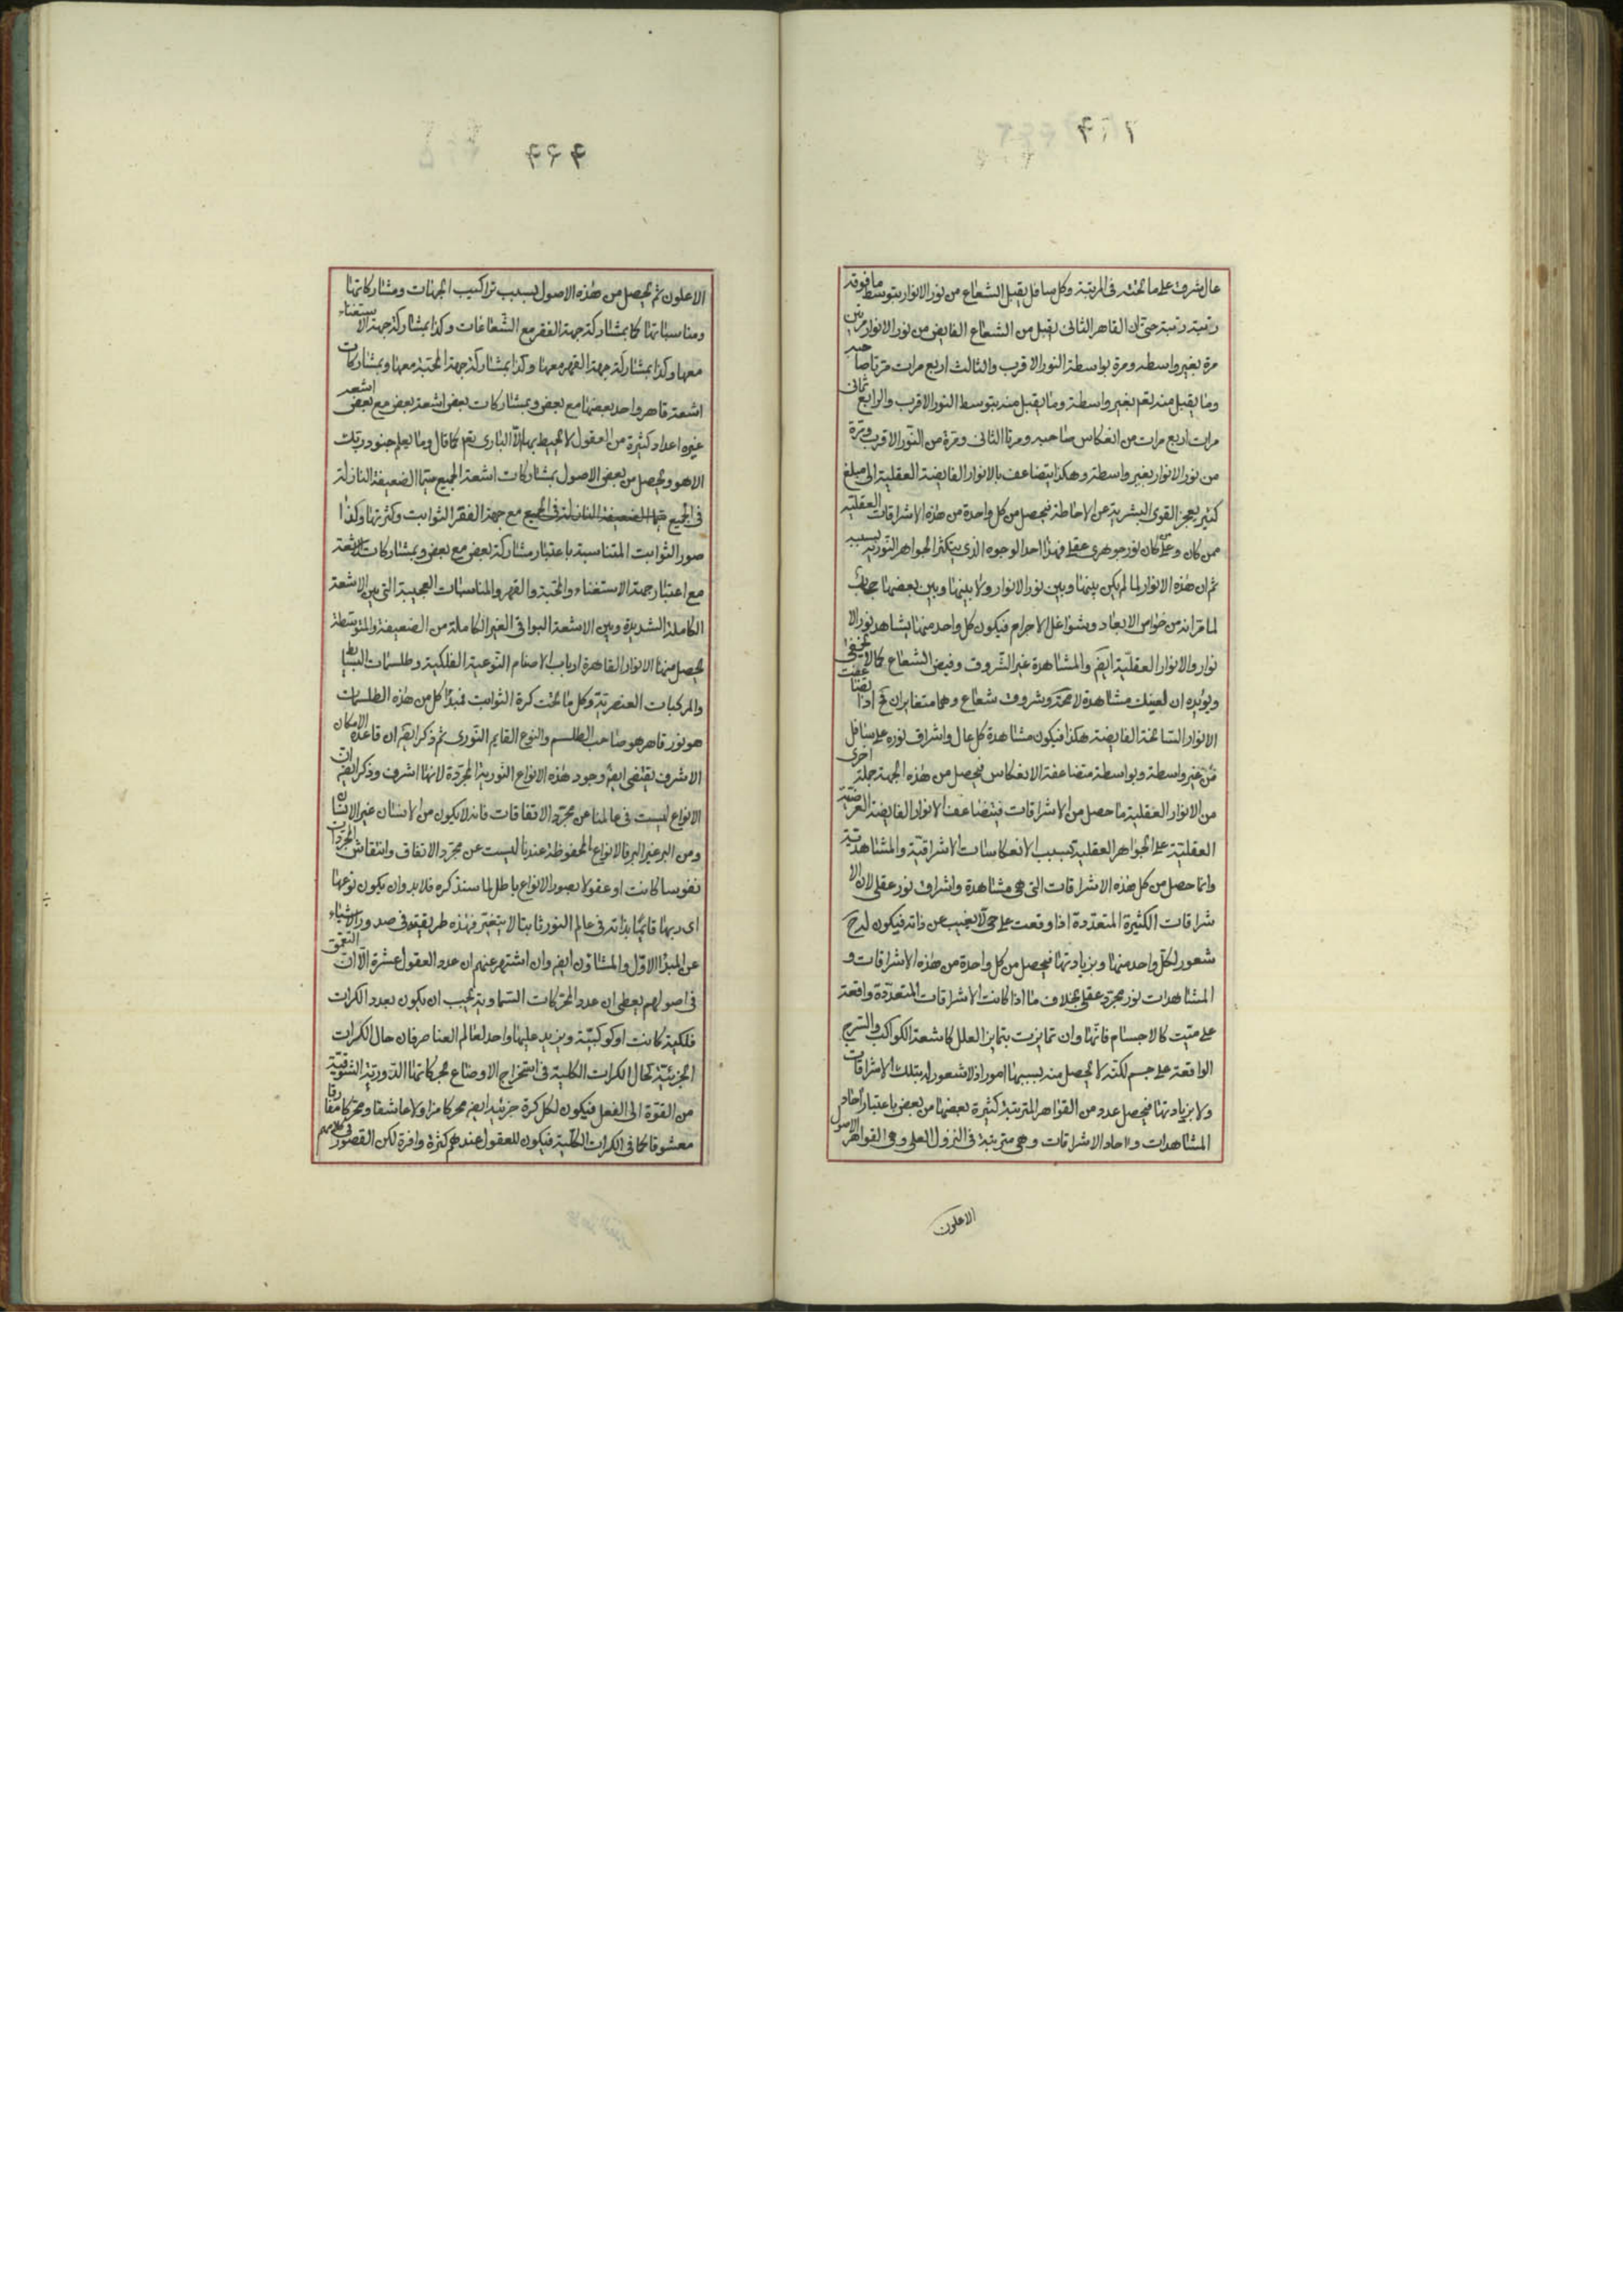 عال يشرق على ما تحته فى المرتبة وكل سافل يقبل الشعاع من نور الانوار بتوسط ما فوقه
رتبة رتبة حتى ان القاهر الثانى يقبل من الشعاع الفايض من نور الانوار مرتين
مرة بغير واسطه ومرة بواسطة النور الاقرب والثالث اربع مرات مرتا صاحبه
وما يقبل منه تعم بغير واسطة وما يقبل منه بتوسط النور الاقرب والرابع ثمانى
مرات اربع مرات من انعكاس صاحبه ومرتا الثانى ومرة من النور الاقرب ومرة
من نور الانوار بغير واسطة وهكذا يتضاعف بالانوار الفايضة العقلية الى مبلغ
كثير يعجز القوى البشرية عن الاحاطة فيحصل من كل واحدة من هذه الاشراقات العقلية
ممن كان وعلى كان نور جوهرى عقلى فهذا احد الوجوه الذى يتكثر الجواهر النورية بسببه
ثم ان هذه الانوار لما لم يكن بينها وبين نور الانوار ولا بينها وبين بعضها حجاب
لما مر انه من خواص الابعاد وشواغل الاجرام فيكون كل واحد منها يشاهد نور الا
نوار والانوار العقلية ايضا والمشاهدة غير الشروق وفيض الشعاع كما لا يخفى
ويؤيده ان لعينك مشاهدة لا محة وشروق شعاع وهما متغايران ثم اذا
الانوار السانحة الفايضة هكذا فيكون مشاهدة كل عال واشراق نوره على سافل
من غير واسطة وبواسطة متضاعفة الانعكاس فيحصل من هذه الجهة جملة اخرى
من الانوار العقلية ما حصل من الاشراقات فيتضاعف الانوار الفايضة العرضية
العقلية على الجواهر العقلية بسبب الانعكاسات الاشراقية والمشاهدتية
وانما حصل من كل هذه الاشراقات التى هى مشاهدة واشراق نور عقلى لان الا
شراقات الكثيرة المتعددة اذا وقعت على حى لا يغيب عن ذاته فيكون له ح
شعور لكل واحد منها وبزيادتها فيحصل من كل واحدة من هذه الاشراقات و
المشاهدات نور مجرد عقلى بخلاف ما اذا كانت الاشراقات المتعددة واقعة
على ميت كالاجسام فانها وان تمايزت بتمايز العلل كاشعة الكواكب والسرج
الواقعة على جسم لكنه لا يحصل منه بسببها امور اذ لا شعور له بتلك الاشراقات
ولا بزيادتها فيحصل عدد من القواهر المترتبة كثيرة بعضها من بعض باعتبار احاد
المشاهدات واحاد الاشراقات وهى مترتبة فى النزول العلى وهى القواهر الاصول
الاعلون
الاعلون ثم يحصل من هذه الاصول بسبب تراكيب الجهات ومشاركاتها
ومناسباتها كما بمشاركة جهة الفقر مع الشعاعات وكذا بمشاركة جهة الاستغناء
معها وكذا بمشاركة جهة القهر معها وكذا بمشاركة جهة المحبة معها وبمشاركات
اشعة قاهر واحد بعضها مع بعض وبمشاركات بعض اشعة بعض مع بعض اشعة
غيره اعداد كثيرة من العقول لا يحيط بها الا البارى تعم كما قال وما يعلم جنود ربك
الا هو ويحصل من بعض الاصول بمشاركات اشعة الجميع سيما الضعيفة النازلة
فى الجميع سيما الضعيفة النازلة فى الجميع مع جهة الفقر الثوابت وكثرتها وكذا
صور الثوابت المتناسبة باعتبار مشاركة بعض مع بعض وبمشاركات الاشعة
مع اعتبار جهة الاستغناء والمحبة والقهر والمناسبات العجيبة التى بين الاشعة
الكاملة الشديدة وبين الاشعة البواقى الغير الكاملة من الضعيفة والمتوسطة
يحصل منها الانوار القاهرة ارباب الاصنام النوعية الفلكية وطلسمات البسايط
والمركبات العنصرية وكل ما تحت كرة الثوابت فمبدأ كل من هذه الطلسمات
هو نور قاهر هو صاحب الطلسم والنوع القايم النورى ثم ذكر ايضا ان قاعدة الامكان
الاشرف يقتضى ايضا وجود هذه الانواع النورية المجردة لانها اشرف وذكر ايضا ان
الانواع ليست فى عالمنا عن مجرد الاتفاقات فانه لا يكون من الانسان غير الانسان
ومن البر غير البر فالانواع المحفوظة عندنا ليست عن مجرد الاتفاق وانتقاش المجردات
نفوسا كانت او عقولا بصور الانواع باطل لما سنذكره فلا بد وان يكون نوعها
اى ربها قائما بذاته فى عالم النور ثابتا لا يتغير فهذه طريقته فى صدور الاشياء
عن المبدأ الاول والمشاؤن ايضا وان اشتهر عنهم ان عدد العقول عشرة الا ان التعمق
فى اصولهم يعطى ان عدد المحركات السماوية يجب ان يكون بعدد الكرات
فلكية كانت او كوكبية ويزيد عليها واحد لعالم العناصر فان حال الكرات
الجزئية كحال الكرات الكلية فى استخراج الاوضاع بحركاتها الدورية الشوقية
من القوة الى الفعل فيكون لكل كرة جزئية ايضا محركا مزاولا عاشقا ومحركا مفارقا
معشوقا كما فى الكرات الكلية فيكون للعقول عندهم كثرة وافرة لكن القصور فى كلامهم